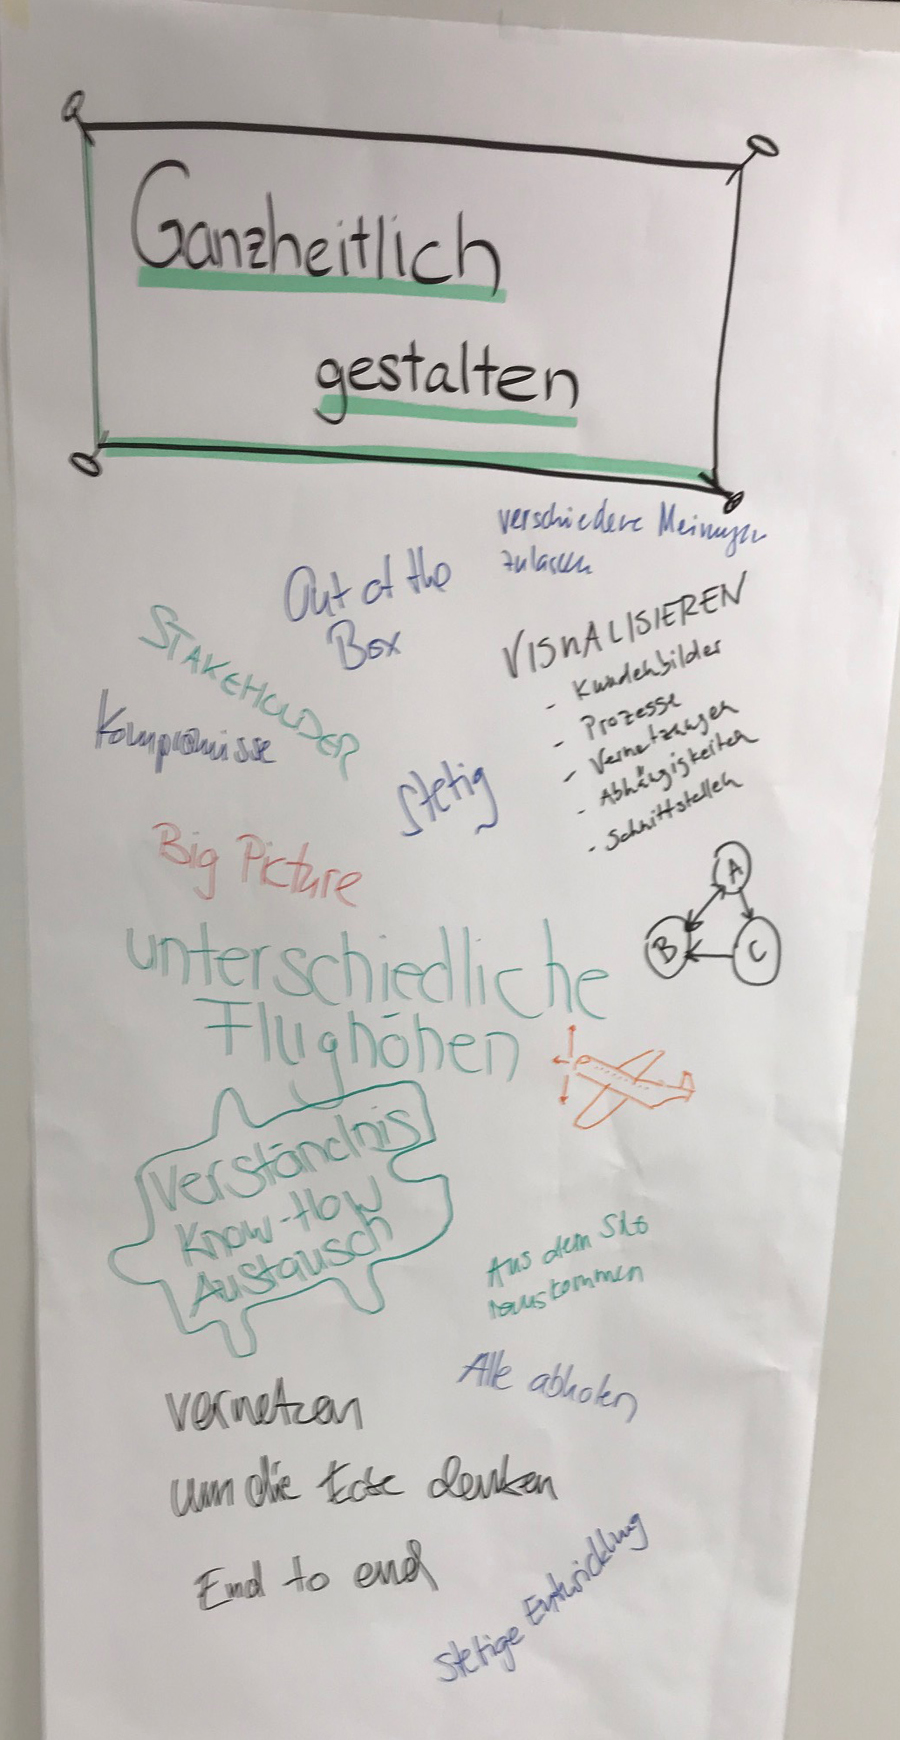 Ganzheitlich
gestalten
verschiedene Meinungen
zulassen
Out of the
Box
STAKEHOLDER
VISUALISIEREN
- Kundenbilder
- Prozesse
- Vernetzungen
- Abhängigkeiten
- Schnittstellen
Kompromisse
Stetig
Big Picture
A
B
C
unterschiedliche
Flughöhen
Verständnis
Know-How
Austausch
Aus dem Silo
rauskommen
Alle abholen
vernetzen
um die Ecke denken
End to end
Stetige Entwicklung